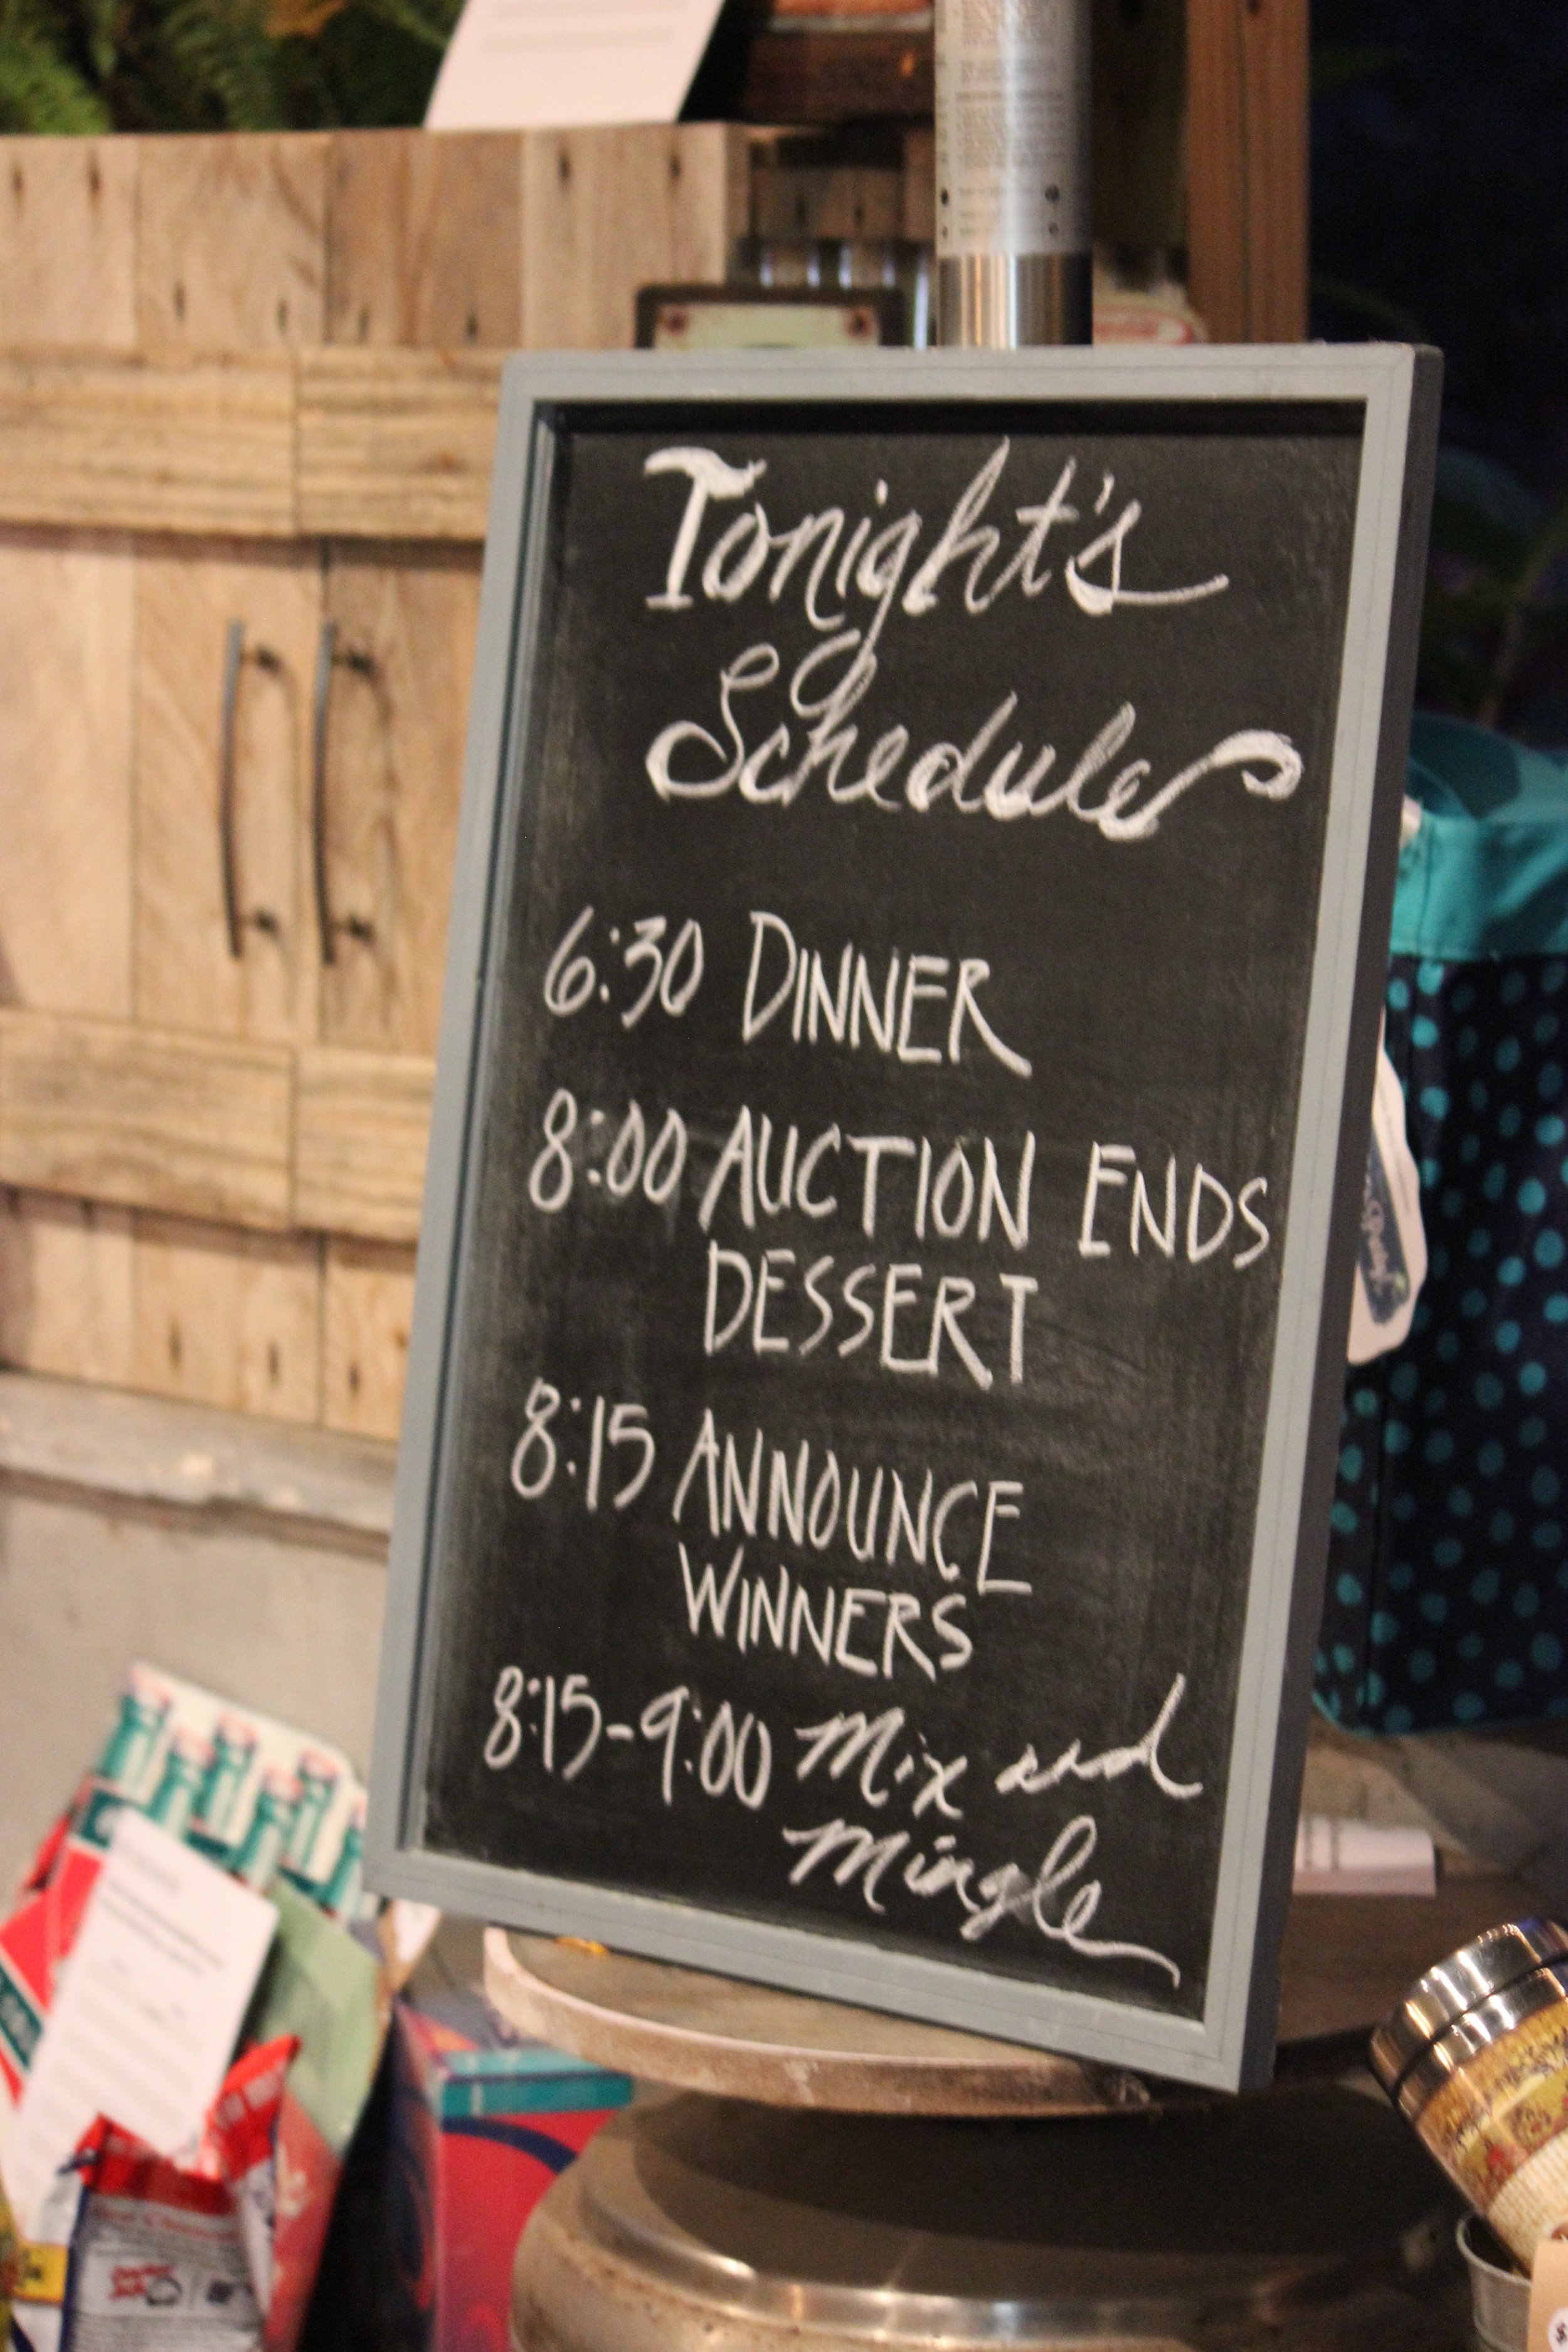 Tonight's
Schedule
6:30 DINNER
8:00 AUCTION ENDS
DESSERT
8:15 ANNOUNCE
WINNERS
8:15-9:00 Mix and
Mingle